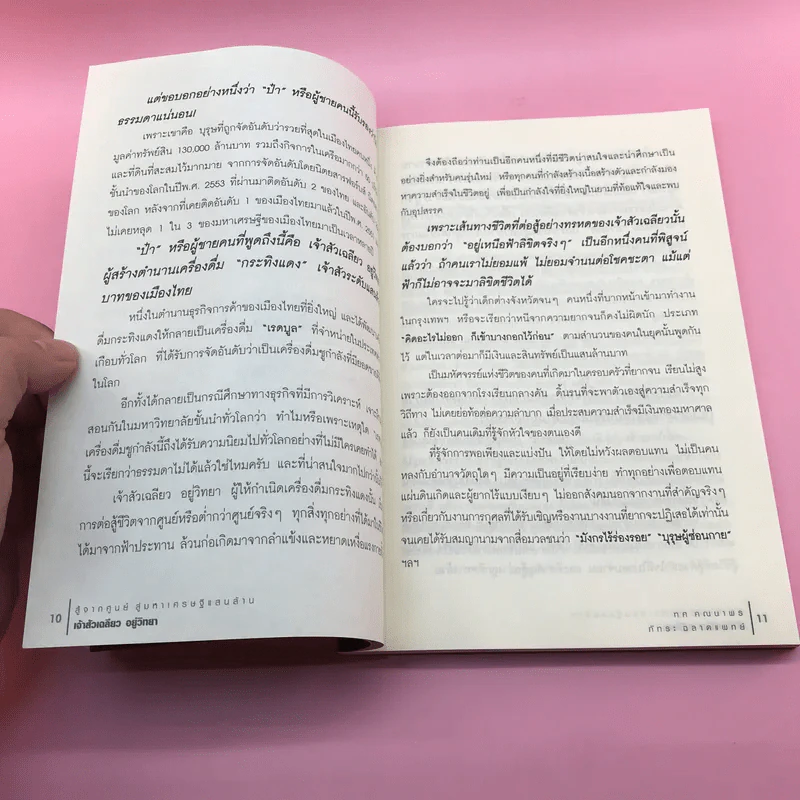 แต่ขอบอกอย่างหนึ่งว่า "ป๋า" หรือผู้ชายคนนี้รับรองว่า
ธรรมดาแน่นอน!
เพราะเขาคือ บุรุษที่ถูกจัดอันดับว่ารวยที่สุดในเมืองไทยคนหนึ่ง
มูลค่าทรัพย์สิน 130,000 ล้านบาท รวมถึงกิจการในเครือมากกว่า
และที่ดินที่สะสมไว้มากมาย จากการจัดอันดับโดยนิตยสารฟอร์บส์
ชั้นนำของโลกในปีพ.ศ. 2553 ที่ผ่านมาติดอันดับ 2 ของไทย และอันดับ
ของโลก หลังจากที่เคยติดอันดับ 1 ของเมืองไทยมาแล้วในปีพ.ศ.
ไม่เคยหลุด 1 ใน 3 ของมหาเศรษฐีของเมืองไทยมาเป็นเวลาหลายปี
"ป๋า" หรือผู้ชายคนที่พูดถึงนี้คือ เจ้าสัวเฉลียว
ผู้สร้างตำนานเครื่องดื่ม "กระทิงแดง" เจ้าสัวระดับแสนล้าน
บาทของเมืองไทย
หนึ่งในตำนานธุรกิจการค้าของเมืองไทยที่ยิ่งใหญ่ และได้
ดื่มกระทิงแดงให้กลายเป็นเครื่องดื่ม "เรดบูล" ที่จำหน่ายในประเทศ
เกือบทั่วโลก ที่ได้รับการจัดอันดับว่าเป็นเครื่องดื่มชูกำลังที่มียอดขาย
ในโลก
อีกทั้งได้กลายเป็นกรณีศึกษาทางธุรกิจที่มีการวิเคราะห์
สอนกันในมหาวิทยาลัยชั้นนำทั่วโลกว่า ทำไมหรือเพราะเหตุใด
เครื่องดื่มชูกำลังนี้ถึงได้รับความนิยมไปทั่วโลกอย่างที่ไม่มีใครเคยทำได้
นี้จะเรียกว่าธรรมดาไม่ได้แล้วใช่ไหมครับ และที่น่าสนใจมากไปกว่านั้น
เจ้าสัวเฉลียว อยู่วิทยา ผู้ให้กำเนิดเครื่องดื่มกระทิงแดงนั้น
การต่อสู้ชีวิตจากศูนย์หรือต่ำกว่าศูนย์จริงๆ ทุกสิ่งทุกอย่างที่ได้มา
ได้มาจากฟ้าประทาน ล้วนก่อเกิดมาจากลำแข้งและหยาดเหงื่อแรงกาย
10 สู้จากศูนย์ สู่มหาเศรษฐีแสนล้าน
เจ้าสัวเฉลียว อยู่วิทยา
จึงต้องถือว่าท่านเป็นอีกคนหนึ่งที่มีชีวิตน่าสนใจและน่าศึกษาเป็น
อย่างยิ่งสำหรับคนรุ่นใหม่ หรือทุกคนที่กำลังสร้างเนื้อสร้างตัวและกำลังมอง
หาความสำเร็จในชีวิตอยู่ เพื่อเป็นกำลังใจที่ยิ่งใหญ่ในยามที่ท้อแท้ใจและพบ
กับอุปสรรค
เพราะเส้นทางชีวิตที่ต่อสู้อย่างทรหดของเจ้าสัวเฉลียวนั้น
ต้องบอกว่า "อยู่เหนือฟ้าลิขิตจริงๆ" เป็นอีกหนึ่งคนที่พิสูจน์
แล้วว่า ถ้าคนเราไม่ยอมแพ้ ไม่ยอมจำนนต่อโชคชะตา แม้แต่
ฟ้าก็ไม่อาจจะมาลิขิตชีวิตได้
ใครจะไปรู้ว่าเด็กต่างจังหวัดจนๆ คนหนึ่งที่บากหน้าเข้ามาทำงาน
ในกรุงเทพฯ หรือจะเรียกว่าหนีจากความยากจนก็คงไม่ผิดนัก ประเภท
"คิดอะไรไม่ออก ก็เข้าบางกอกไว้ก่อน" ตามสำนวนของคนในยุคนั้นพูดกัน
ไว้ แต่ในเวลาต่อมาก็มีเงินและสินทรัพย์เป็นแสนล้านบาท
เป็นมหัศจรรย์แห่งชีวิตของคนที่เกิดมาในครอบครัวที่ยากจน เรียนไม่สูง
เพราะต้องออกจากโรงเรียนกลางคัน ดิ้นรนที่จะพาตัวเองสู่ความสำเร็จทุก
วิถีทาง ไม่เคยย่อท้อต่อความลำบาก เมื่อประสบความสำเร็จมีเงินทองมหาศาล
แล้ว ก็ยังเป็นคนเดิมที่รู้จักหัวใจของตนเองดี
ที่รู้จักการพอเพียงและแบ่งปัน ให้โดยไม่หวังผลตอบแทน ไม่เป็นคน
หลงกับอำนาจวัตถุใดๆ มีความเป็นอยู่ที่เรียบง่าย ทำทุกอย่างเพื่อตอบแทน
แผ่นดินเกิดและผู้ยากไร้แบบเงียบๆ ไม่ออกสังคมนอกจากงานที่สำคัญจริงๆ
หรือเกี่ยวกับงานการกุศลที่ได้รับเชิญหรืองานบางงานที่ยากจะปฏิเสธได้เท่านั้น
จนเคยได้รับสมญานามจากสื่อมวลชนว่า "มังกรไร้ร่องรอย" "บุรุษผู้ซ่อนกาย"
ฯลฯ
ทศ คณนาพร
ภัทระ ฉลาดแพทย์ 11